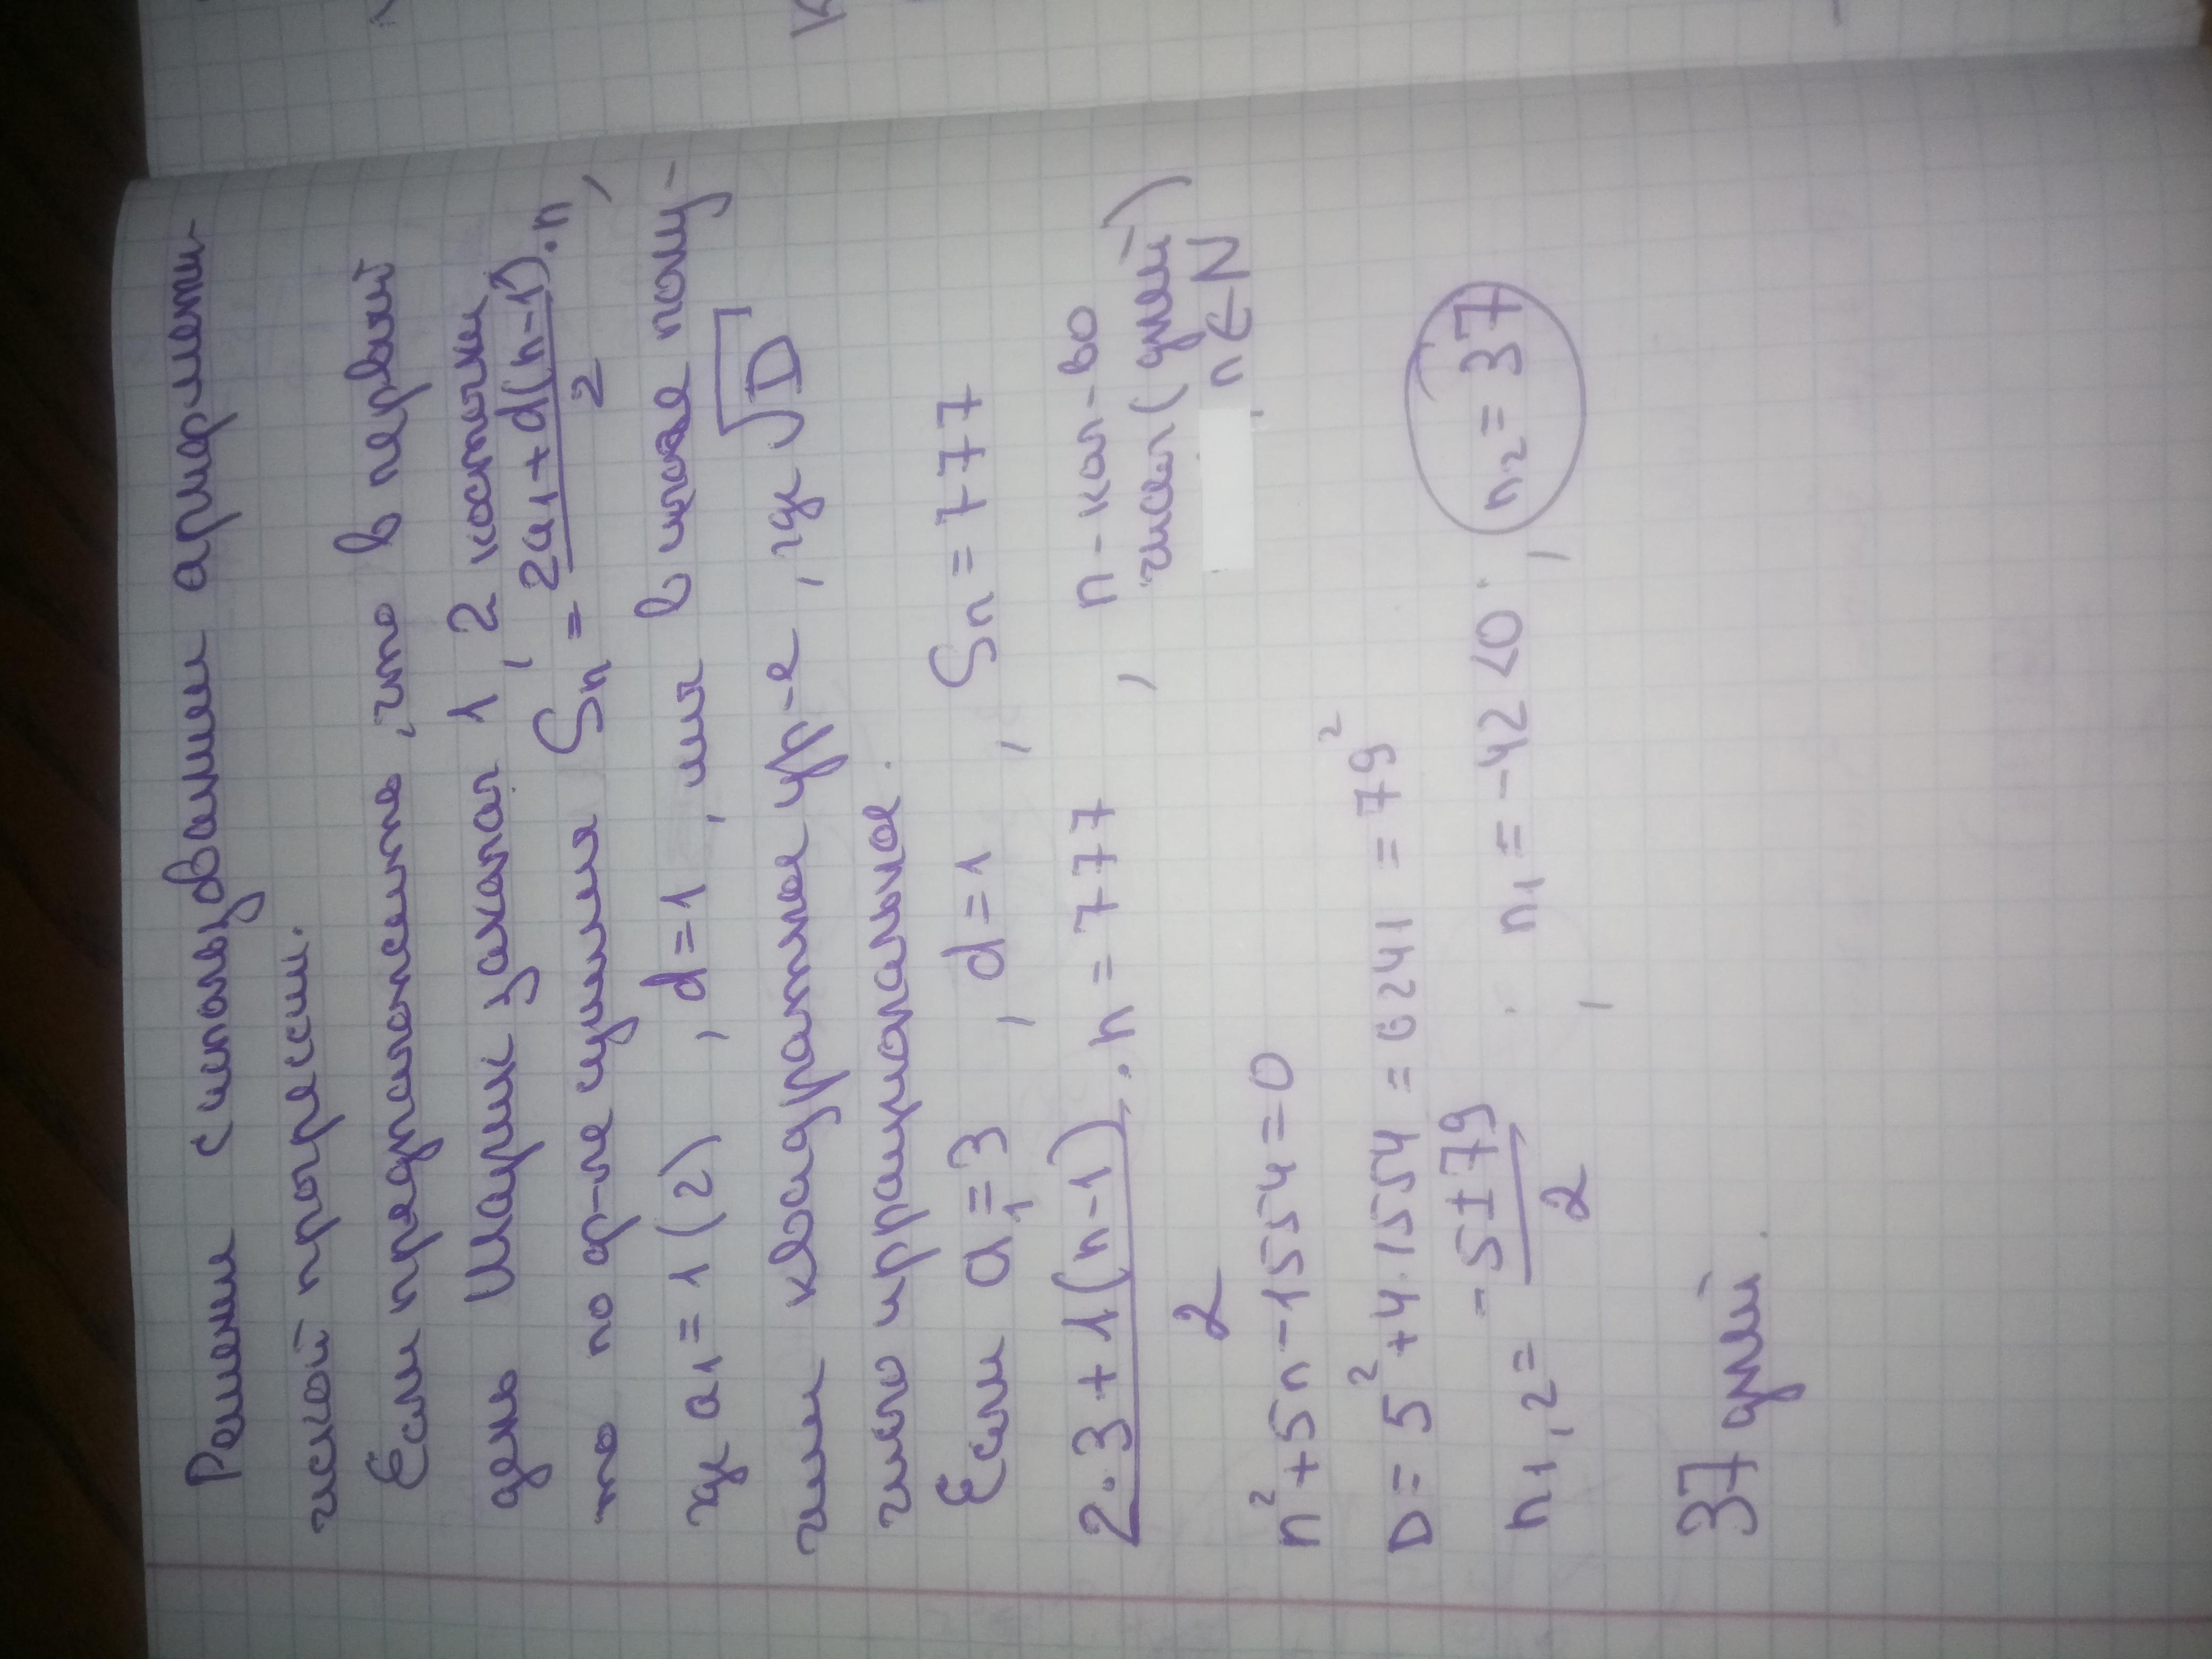 Решени с использовании арифмети-
ческой прогресии.
Если предположить, что в первый
день Шарик закопал 1, 2 косточки,
то по ф-ле суммы Sn = 2a1 + d(n-1) / 2 · n,
где a1 = 1 (2), d = 1, или в итоге полу-
чим квадратное ур-е, где √D
число иррациональное.
Если a1 = 3, d = 1, Sn = 777
2·3 + 1(n-1) / 2 · n = 777, n - кол-во
чисел (дней)
n ∈ N
n² + 5n - 1554 = 0
D = 5² + 4·1554 = 6241 = 79²
n1,2 = -5 ± 79 / 2, n1 = -42 < 0; n2 = 37
37 дней.